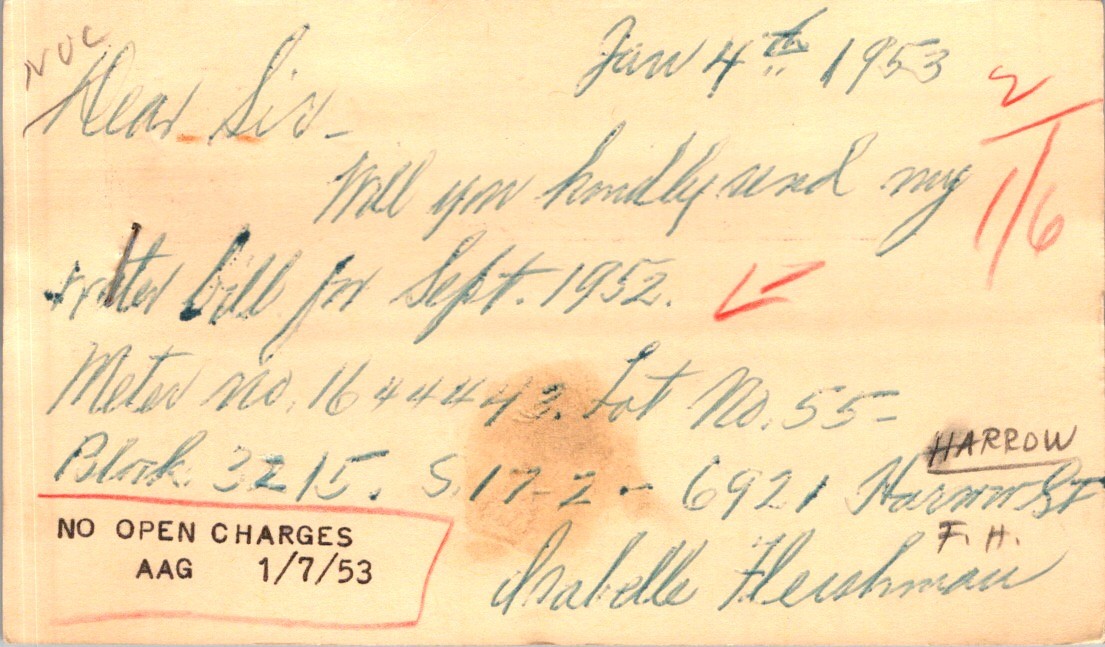 NVC
Jan 4th 1953
Dear Sir -
2/
1/6
Will you kindly send my
water bill for Sept. 1952.
Meter no. 1644443. Lot No. 55-
HARROW
Block 3215. S. 17-2 - 6921 Harrow St
NO OPEN CHARGES
F. H.
AAG 1/7/53
Isabelle Fleishman